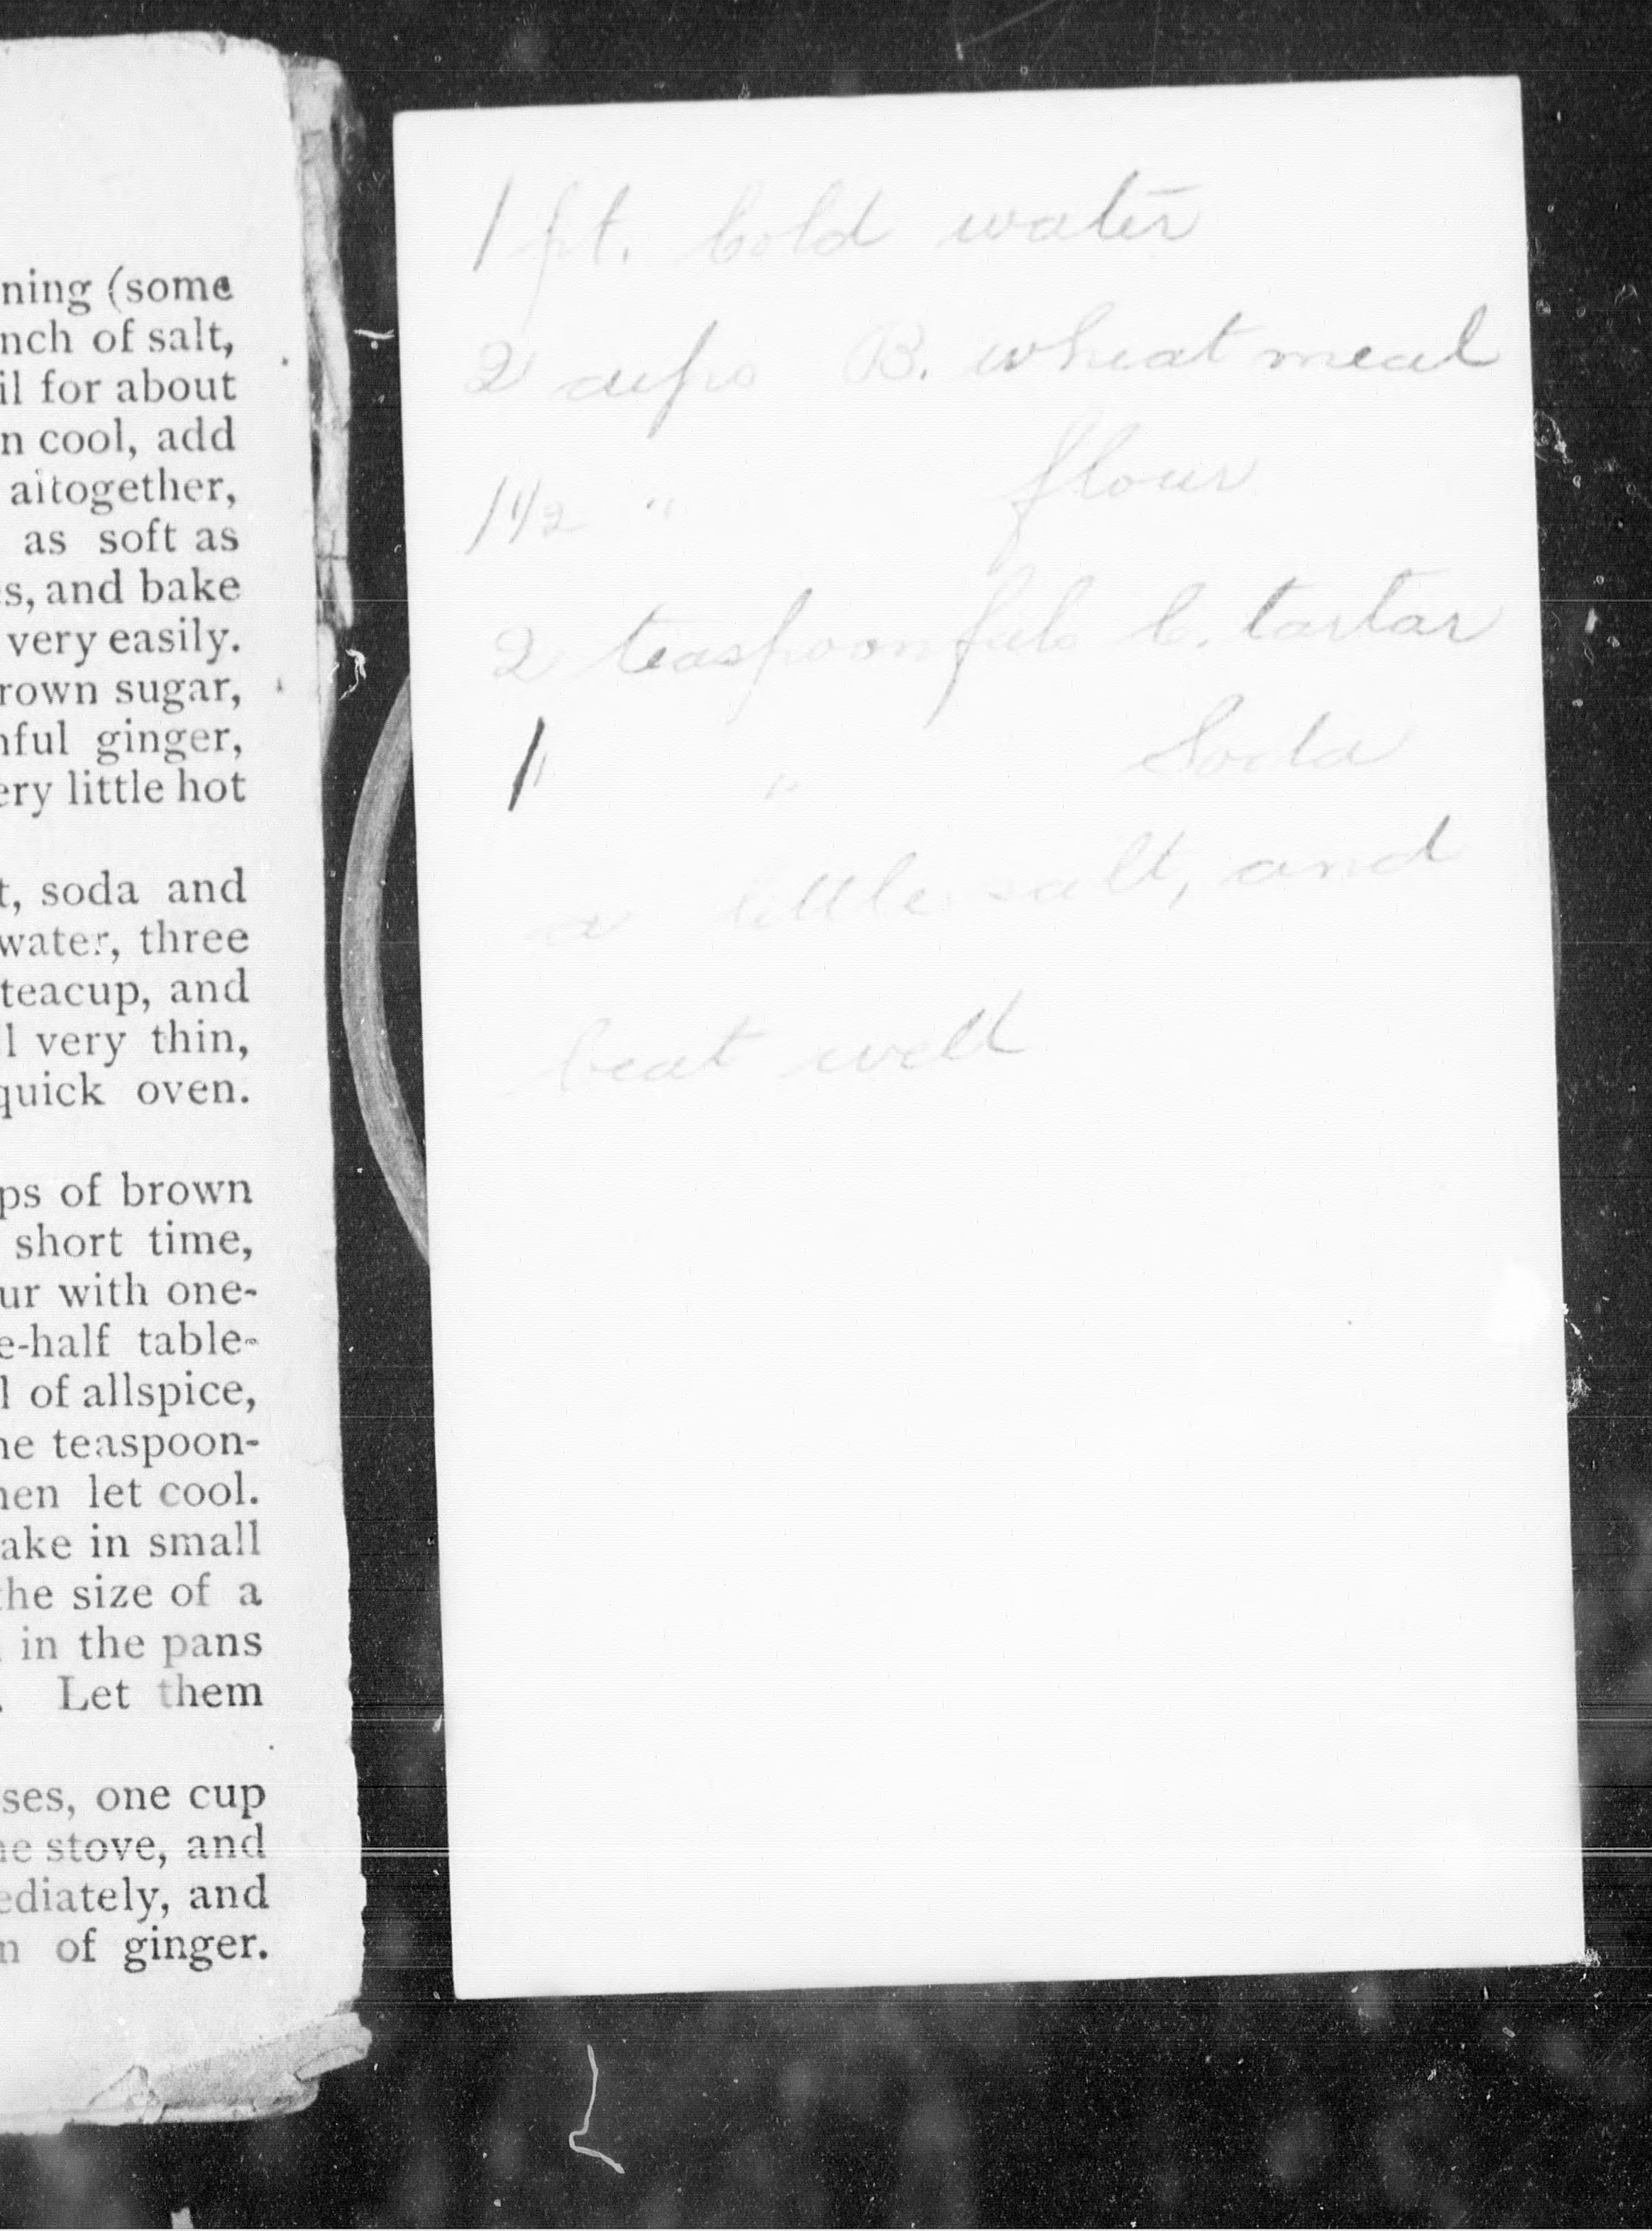 ning (some
nch of salt,
il for about
n cool, add
aitogether,
as soft as
s, and bake
very easily.
rown sugar,
nful ginger,
ery little hot
t, soda and
water, three
teacup, and
l very thin,
quick oven.
ps of brown
short time,
ur with one-
e-half table-
l of allspice,
ne teaspoon-
hen let cool.
ake in small
the size of a
in the pans
. Let them
ses, one cup
he stove, and
ediately, and
n of ginger.
1 pt. Cold water
2 cups B. wheat meal
1 1/2 " flour
2 teaspoonfuls C. tartar
1 " Soda
a little salt, and
beat well